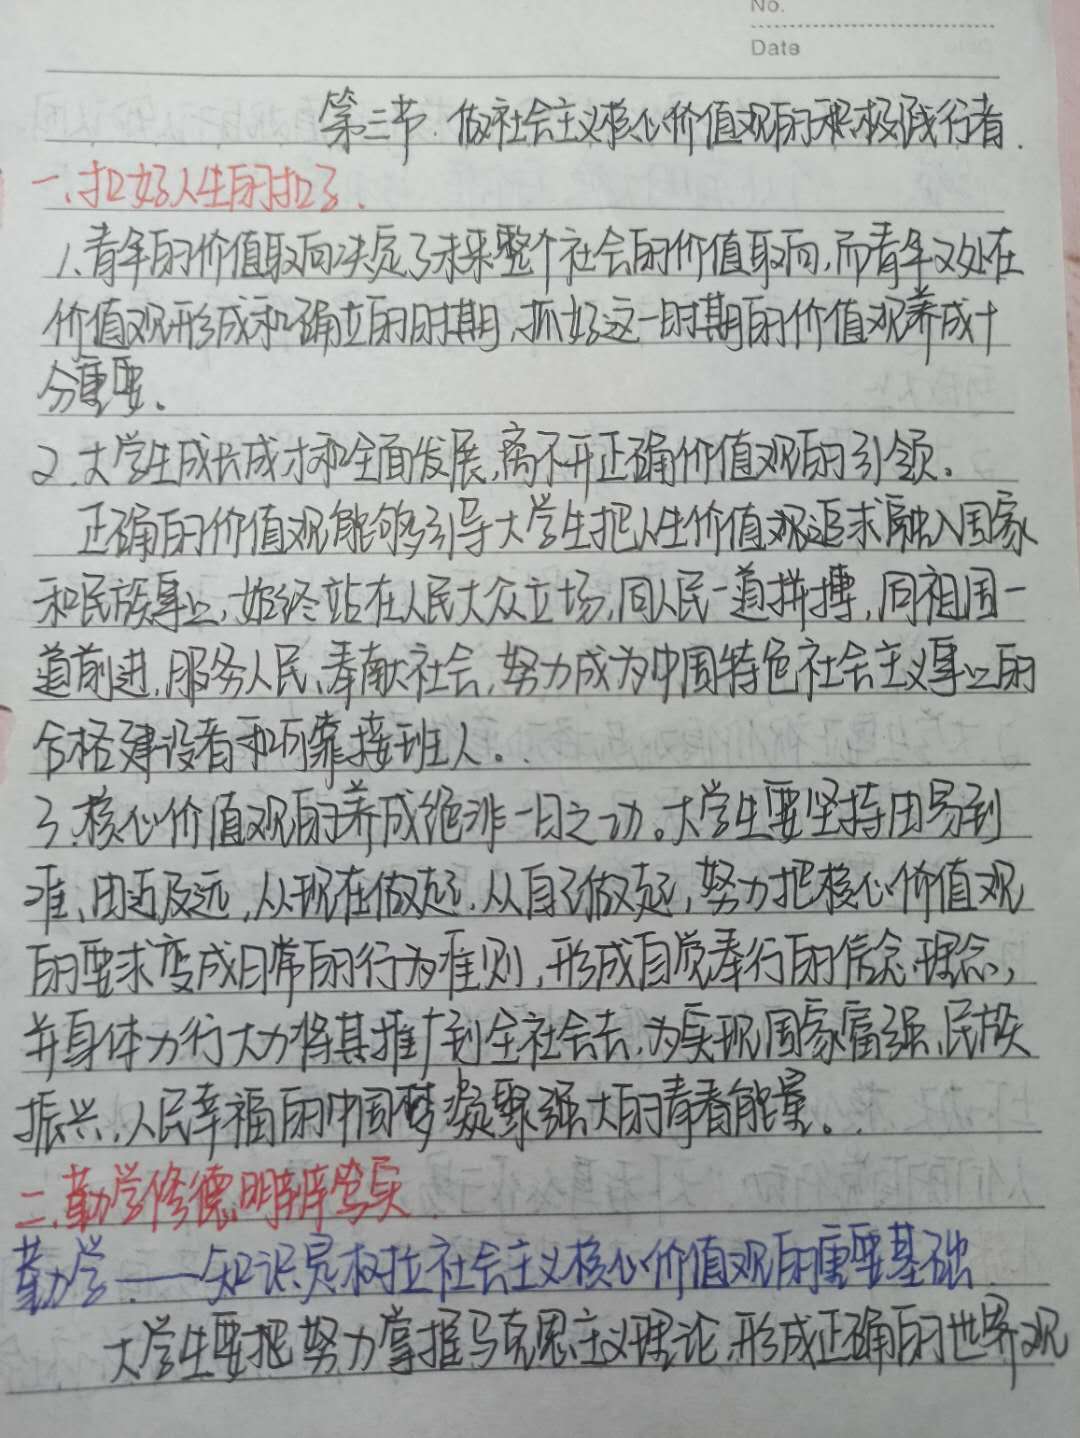 No.
Date
第三节. 做社会主义核心价值观的积极践行者.
一、扣好人生的扣子.
1、青年的价值取向决定了未来整个社会的价值取向,而青年又处在
价值观形成和确立的时期,抓好这一时期的价值观养成十
分重要。
2、大学生成长成才和全面发展,离不开正确价值观的引领。
正确的价值观能够引导大学生把人生价值观追求融入国家
和民族事业,始终站在人民大众立场,同人民一道拼搏,同祖国一
道前进,服务人民、奉献社会,努力成为中国特色社会主义事业的
合格建设者和可靠接班人。
3、核心价值观的养成绝非一日之功。大学生要坚持由易到
难、由近及远,从现在做起,从自己做起,努力把核心价值观
的要求变成日常的行为准则,形成自觉奉行的信念、理念,
并身体力行大力将其推广到全社会去,为实现国家富强、民族
振兴、人民幸福的中国梦凝聚强大的青春能量。
二、勤学修德明辨笃实
勤学——知识是树立社会主义核心价值观的重要基础
大学生要把努力掌握马克思主义理论,形成正确的世界观